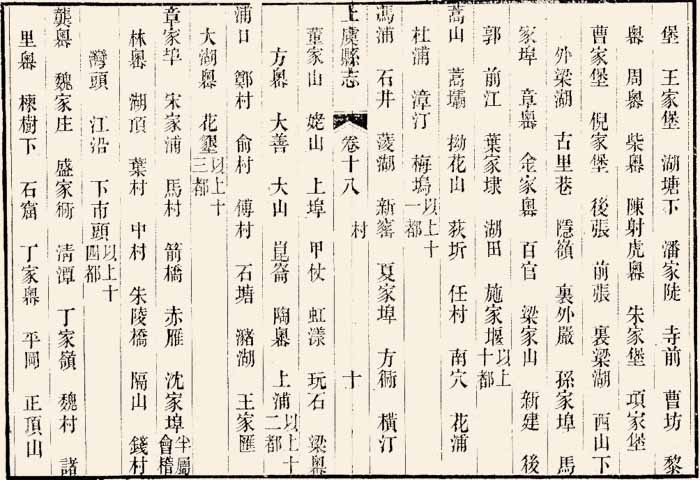 堡 王家堡 湖塘下 潘家陡 寺前 曹坊 黎
嶴 周嶴 柴嶴 陳射虎嶴 朱家堡 項家堡
曹家堡 倪家堡 後張 前張 裏梁湖 西山下
外梁湖 古里巷 隱嶺 裏外嚴 孫家埠 馬
家埠 章嶴 金家嶴 百官 梁家山 新建 後
郭 前江 葉家埭 湖田 施家堰以上十都
蒿山 蒿壩 拗花山 荻圻 任村 南穴 花浦
杜浦 漳汀 梅塢以上十一都
馮浦 石井 菱湖 新窰 夏家埠 方衖 橫汀
上虞縣志 卷十八 村 十
董家山 姥山 上埠 甲仗 虹漾 玩石 梁嶴
方嶴 大善 大山 崑崙 陶嶴 上浦以上十二都
浦口 鄭村 俞村 傅村 石塘 瀦湖 王家匯
大湖嶴 花墾以上十三都
章家埠 宋家浦 馬村 箭橋 赤雁 沈家埠半屬會稽
林嶴 湖頂 葉村 中村 朱陵橋 隔山 錢村
灣頭 江沿 下市頭以上十四都
龔嶴 魏家庄 盛家衖 清潭 丁家嶺 魏村 諸
里嶴 楝樹下 石窟 丁家嶴 平岡 正頂山